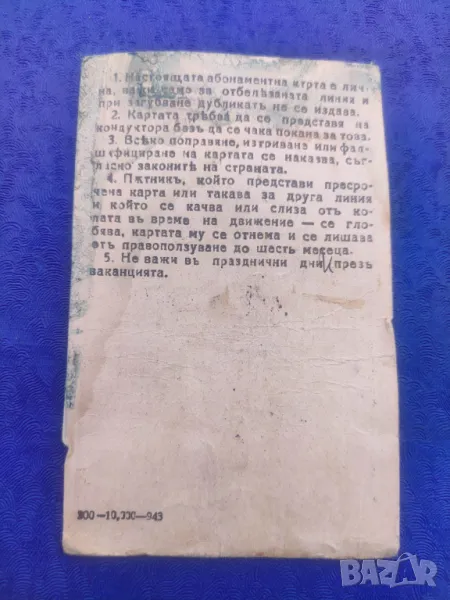 1. Настоящата абонаментна карта е лич-
на, важи само за отбелѣзаната линия и
при загубване дубликатъ не се издава.
2. Картата трѣбва да се представя на
кондуктора безъ да се чака покана за това.
3. Всѣко поправяне, изтриване или фал-
шифициране на картата се наказва, съг-
ласно законитѣ на страната.
4. Пѫтникъ, който представи преcро-
чена карта или такава за друга линия
и който се качва или слиза отъ ко-
лата въ време на движение — се гло-
бява, картата му се отнема и се лишава
отъ правоползуване до шесть месеца.
5. Не важи въ празднични дни и презъ
ваканцията.
300—10,000—943
BAZAR
bg